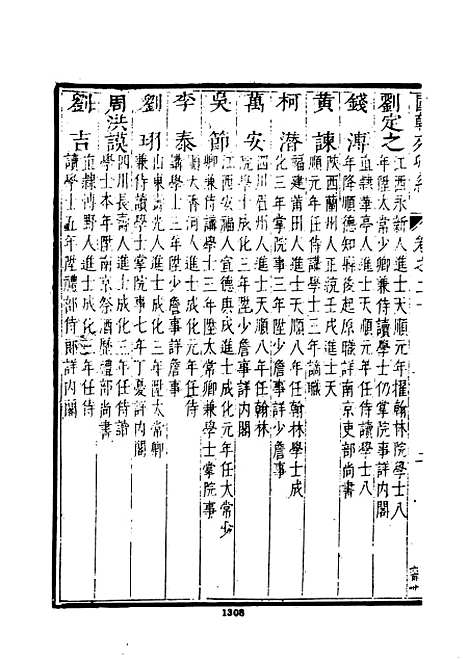 國朝列卿紀 卷之二十
劉定之
江西永新人進士天順元年擢翰林院學士八
年陞太常少卿兼侍讀學士仍掌院事詳內閣
錢溥
直隸華亭人進士天順元年任侍讀學士八
年降順德知縣後起原職詳南京吏部尚書
黃諫
陝西蘭州人正統壬戌進士天
順元年任侍講學士三年謫職
柯潛
福建莆田人進士天順八年任翰林學士成
化三年掌院事三年陞少詹事詳少詹事
萬安
四川眉州人進士天順八年任翰林
學士成化三年陞少詹事詳內閣
吳節
江西安福人宣德庚戌進士成化元年任太常少
卿兼侍講學士三年陞太常卿兼學士掌院事
李泰
順天香河人進士成化元年任侍
講學士三年陞少詹事詳詹事
劉珝
山東壽光人進士成化三年陞太常卿
兼侍讀學士掌院事七年丁憂詳內閣
周洪謨
四川長壽人進士成化三年任侍讀
學士本年陞南京祭酒歷禮部尚書
劉吉
直隸博野人進士成化三年任侍
讀學士五年陞禮部侍郎詳內閣
1308